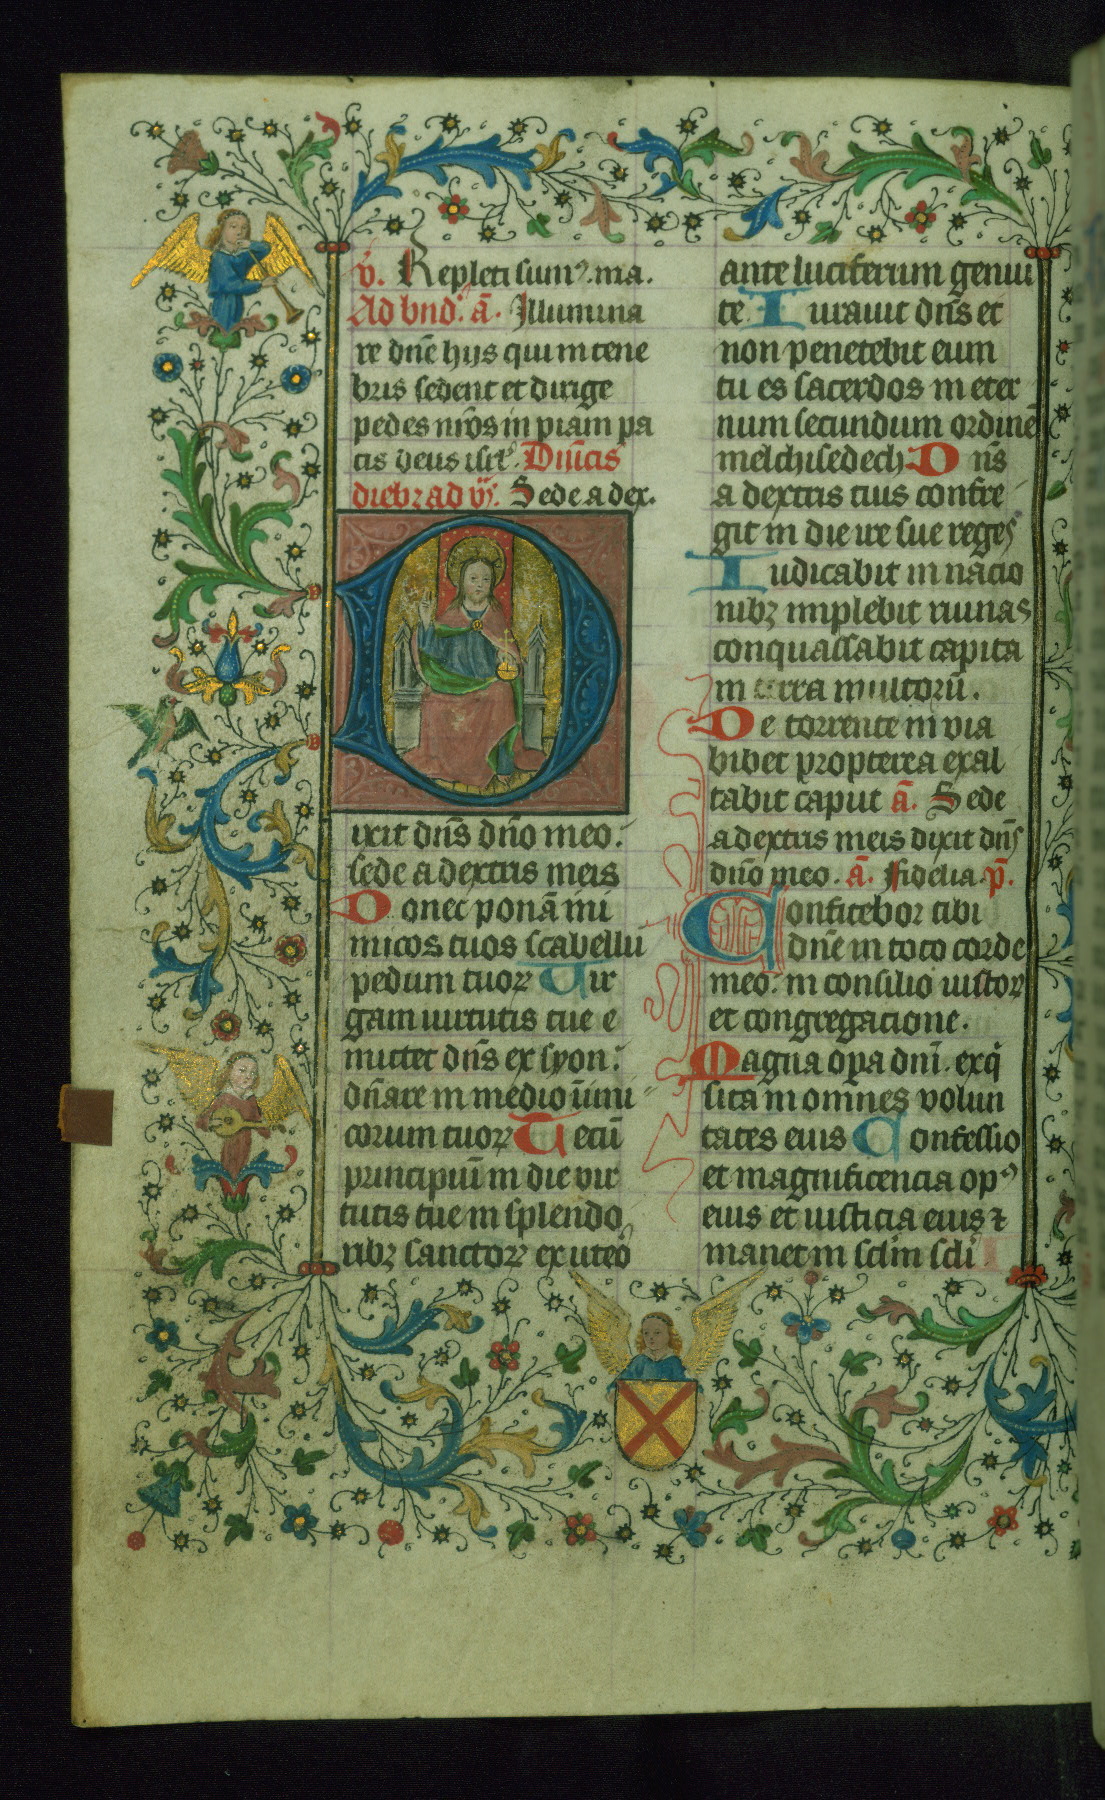 v̄. Repleti sumꝰ. ma.
Ad bnd'. ā. Illumina
re dn̄e hijs qui in tene
bris sedent et dirige
pedes nr̄os in piam pa
cis deus isrl'. Diuīcis
diebꝫ ad vj̄. Sede a dex.
D
ixit dn̄s dn̄o meo:
sede a dextris meis
Donec ponā ini
micos tuos scabellū
pedum tuoꝝ Vir
gam uirtutis tue e
mittet dn̄s ex syon:
dn̄are in medio īimi
corum tuoꝝ Tecū
principiū in die uir
tutis tue in splendo
ribꝫ sanctoꝝ ex uteō
ante luciferum genui
te Iurauit dn̄s et
non penetebit eum
tu es sacerdos in eter
num secundum ordinē
melchisedech Dn̄s
a dextris tuis confre
git in die ire sue reges
Iudicabit in nacio
nibꝫ implebit ruinas
conquassabit capita
in terra multorū.
De torrente in via
bibet propterea exal
tabit caput ā. Sede
a dextris meis dixit dn̄s
dn̄o meo. ā. Fidelia. p̄.
Confitebor tibi
dn̄e in toto corde
meo: in consilio iustoꝝ
et congregacione.
Magna oꝑa dnī. exq̇
sita in omnes volun
tates eius Confessio
et magnificencia opꝰ
eius et iusticia eius ⁊
manet in sclīm sclī